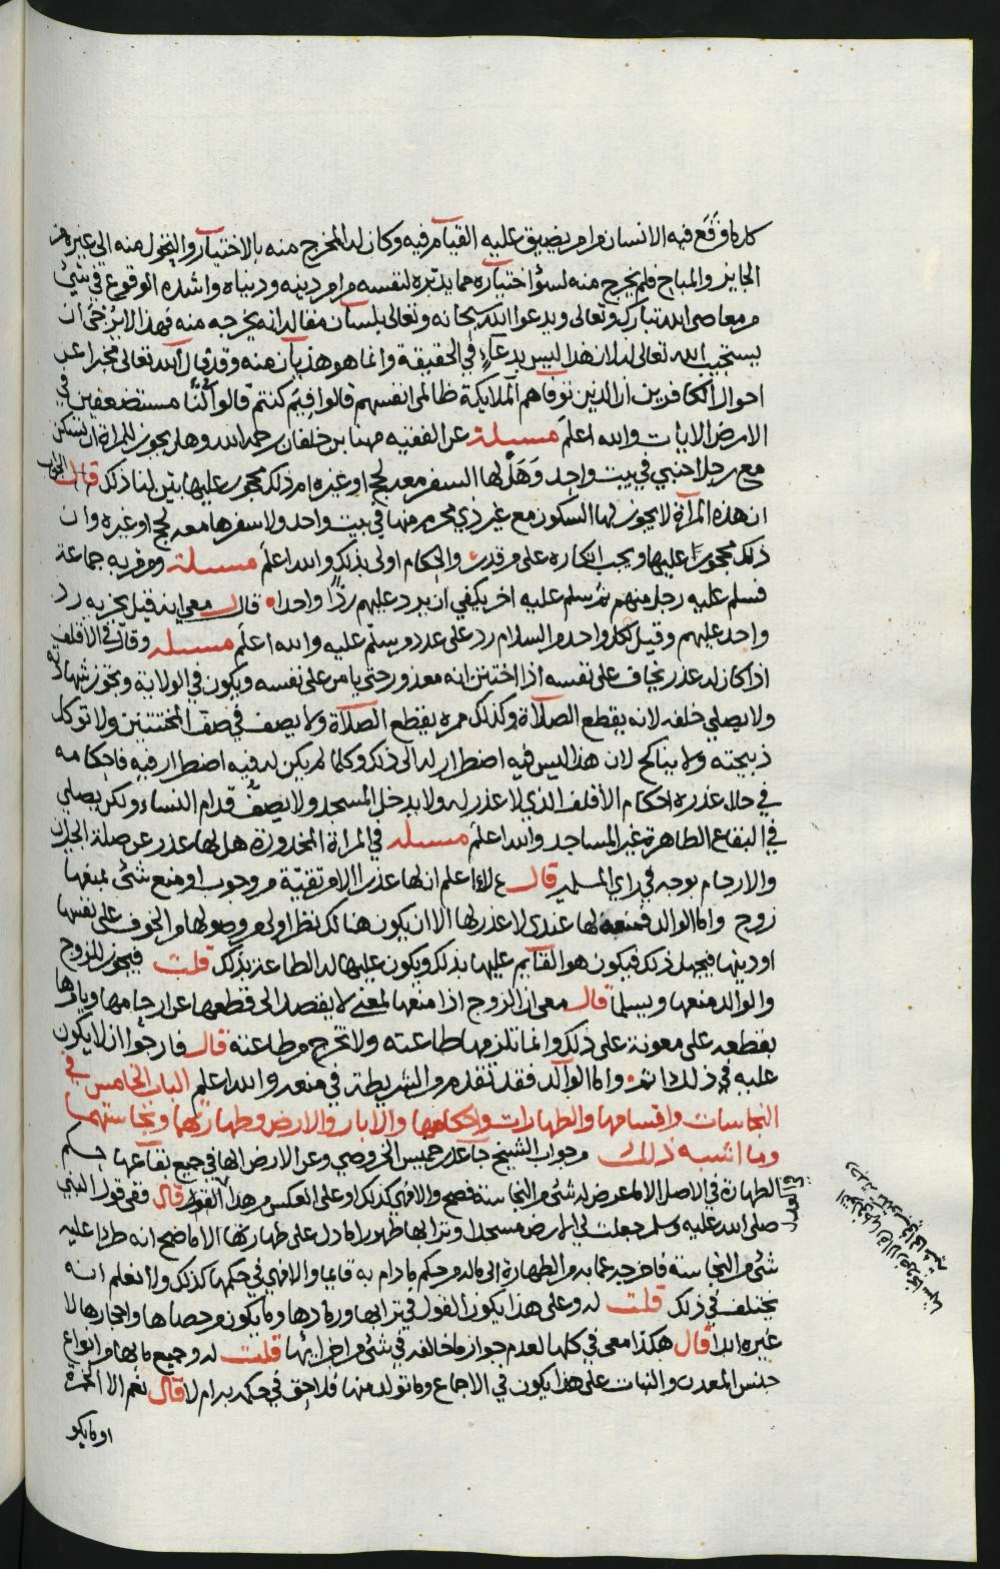 كلما وقع فيه الانسان من امر يضيق عليه القيام فيه وكان له المخرج منه بالاختيار والتحول منه الى غيره من
الجايز والمباح فلم يخرج منه لسؤ اختياره مما يدبره لنفسه من امر دينه ودنياه واشده الوقوع في شئ
من معاصي الله تبارك وتعالى ويدعوا الله سبحانه وتعالى بلسان مقاله انه يخرجه منه فهذا لا يرجى ان
يستجيب الله تعالى له لان هذا ليس بدعاء في الحقيقة وانما هو هذيان منه وقد قال الله تعالى مخبرا عن
احوال الكافرين ان الذين توفاهم الملايكة ظالمي انفسهم قالوا فيم كنتم قالوا كنا مستضعفين في
الارض الايات والله اعلم مسئلة عن الفقيه مهنا بن خلفان رحمه الله وهل يجوز للمراة ان تسكن
مع رجل اجنبي في بيت واحد وهل لها السفر معه لحج او غيره ام ذلك محجور عليها بين لنا ذلك قال
ان هذه المرأة لا يجوز لها السكون مع غير ذي محرم منها في بيت واحد ولا سفرها معه لحج او غيره وان
ذلك محجورا عليها ويجب انكاره على من قدر والحكام اولى بذلك والله اعلم مسئلة ومن مر به جماعة
فسلم عليه رجل منهم ثم سلم عليه اخر يكفي ان يرد عليهم ردا واحدا قال معي انه قيل يجزيه رد
واحد عليهم وقيل لكل واحد والسلام رد على عدد من سلم عليه والله اعلم مسئله وقال في الاقلف
اذا كان له عذر يخاف على نفسه اذا اختتن انه معذور حتى يامن على نفسه ويكون في الولاية وتجوز شهادته
ولا يصلي خلفه لانه يقطع الصلاة وكذلك ممره يقطع الصلاة ولا يصف في صف المختتنين ولا توكل
ذبيحته ولا يناكح لان هذا ليس فيه اضطرار له الى ذلك وكلما لم يكن له فيه اضطرار فيه فاحكامه
في حال عذره احكام الأقلف الذي لا عذر له ولا يدخل المسجد ولا يصف قدام النساء ولكن يصلي
في البقاع الطاهرة غير المساجد والله اعلم مسئله في المراة المخدورة هل لها عذر عن صلة الجيران
والارحام بوجه في راي المسلمين قال لا اعلم ان لها عذرا الا من تقية من وجوب او منع شئ يمنعها
زوج واما الوالد فمنعه لها عندي لا عذر لها الا ان يكون هنالك نظر اولى من وصولها من الخوف على نفسها
او دينها فيجهل ذلك فيكون هو القايم عليها بذلك ويكون عليها له الطاعة بذلك قلت فيجوز للزوج
والوالد منعها ويسلما قال معي ان الزوج اذا منعها لمعنى لا يقصد الى قطعها عن ارحامها ويامرها
بقطعه على معونة على ذلك وانما تلزمها طاعته ولا تخرج من طاعته قال فارجوا ان لا يكون
عليه في ذلك اثم واما الوالد فقد تقدم من الشريطة في منعه والله اعلم الباب الخامس في
النجاسات واقسامها والطهارات واحكامها والابار والارض وطهارتهما ونجاستهما
وما اشبه ذلك من جواب الشيخ جاعد بن خميس الخروصي وعن الارض الها في جميع بقاعها حكم
الطهارة في الاصل الا لما عرض له شئ من النجاسة فصح والا فهي كذلك او على العكس من هذا القول قال ففي قول النبي
صلى الله عليه وسلم جعلت لي الارض مسجدا وترابها طهورا ما دل على طهارتها الا ما صح انه طرا عليه
شئ من النجاسة فاخرجه عما به من الطهارة الى ماله من حكم ما دام به قايما والا فهي في حكمها كذلك ولا نعلم انه
يختلف في ذلك قلت له وعلى هذا يكون القول في ترابها ورمادها وما يكون من حصاها واحجارها لا
غيره ابدا قال هكذا معي في كلها لعدم جواز ما خالفه في شئ من اجزائها قلت له وجميع ما بها من انواع
جنس المعدن والنبات على هذا يكون في الاجماع وما تولد منها فلاحق في حكمه بها ام لا قال نعم الا الخمرة
او ما يكو